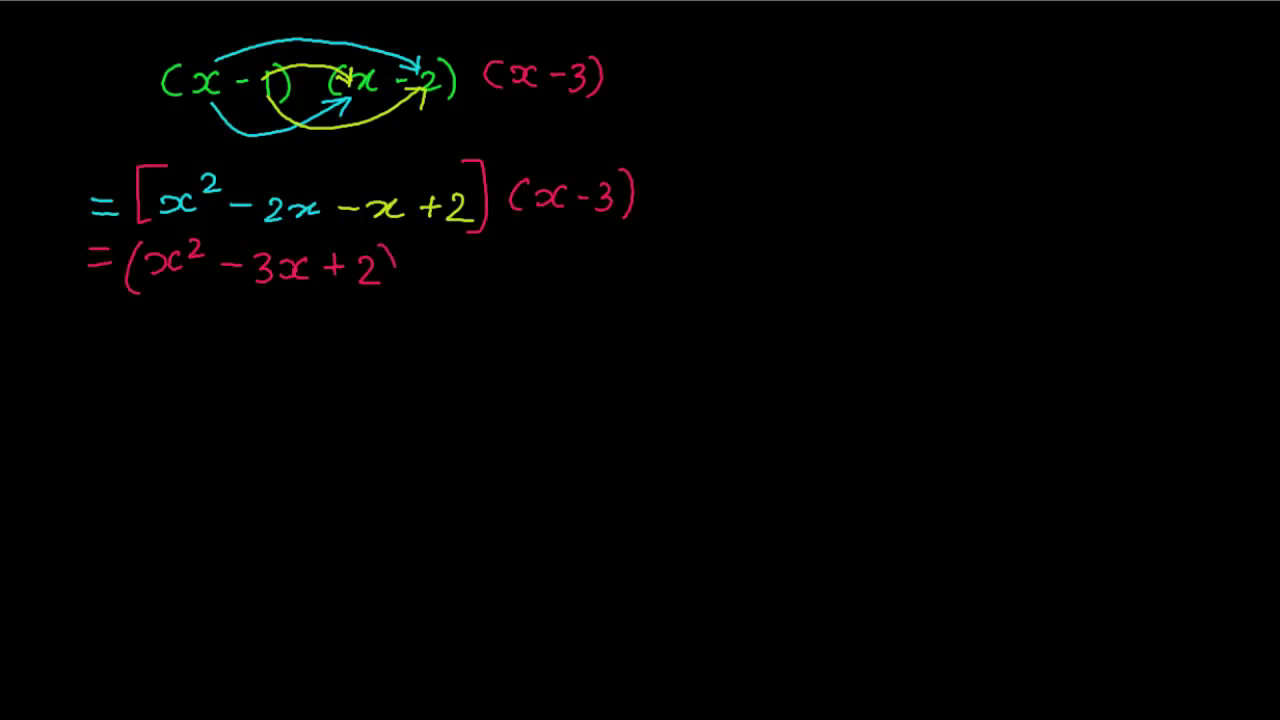 (x - 1) (x - 2) (x - 3)
= [x² - 2x - x + 2] (x - 3)
= (x² - 3x + 2)